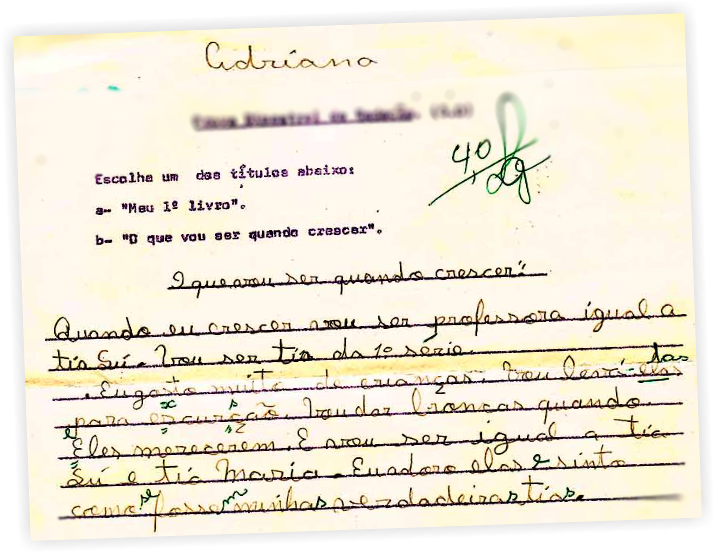 Adriana
4,0
Escolha um dos títulos abaixo:
a- "Meu 1º livro".
b- "O que vou ser quando crescer".
O que vou ser quando crescer".
Quando eu crescer vou ser professora igual a
tia Sú. Vou ser tia da 1º série.
Eu gosto muito de crianças. Vou levá-las
para escurção. Vou dar broncas quando
Eles merecerem. E vou ser igual a tia
Sú e tia Maria. Eu adoro elas e sinto
como se fossem minhas verdadeiras tias.